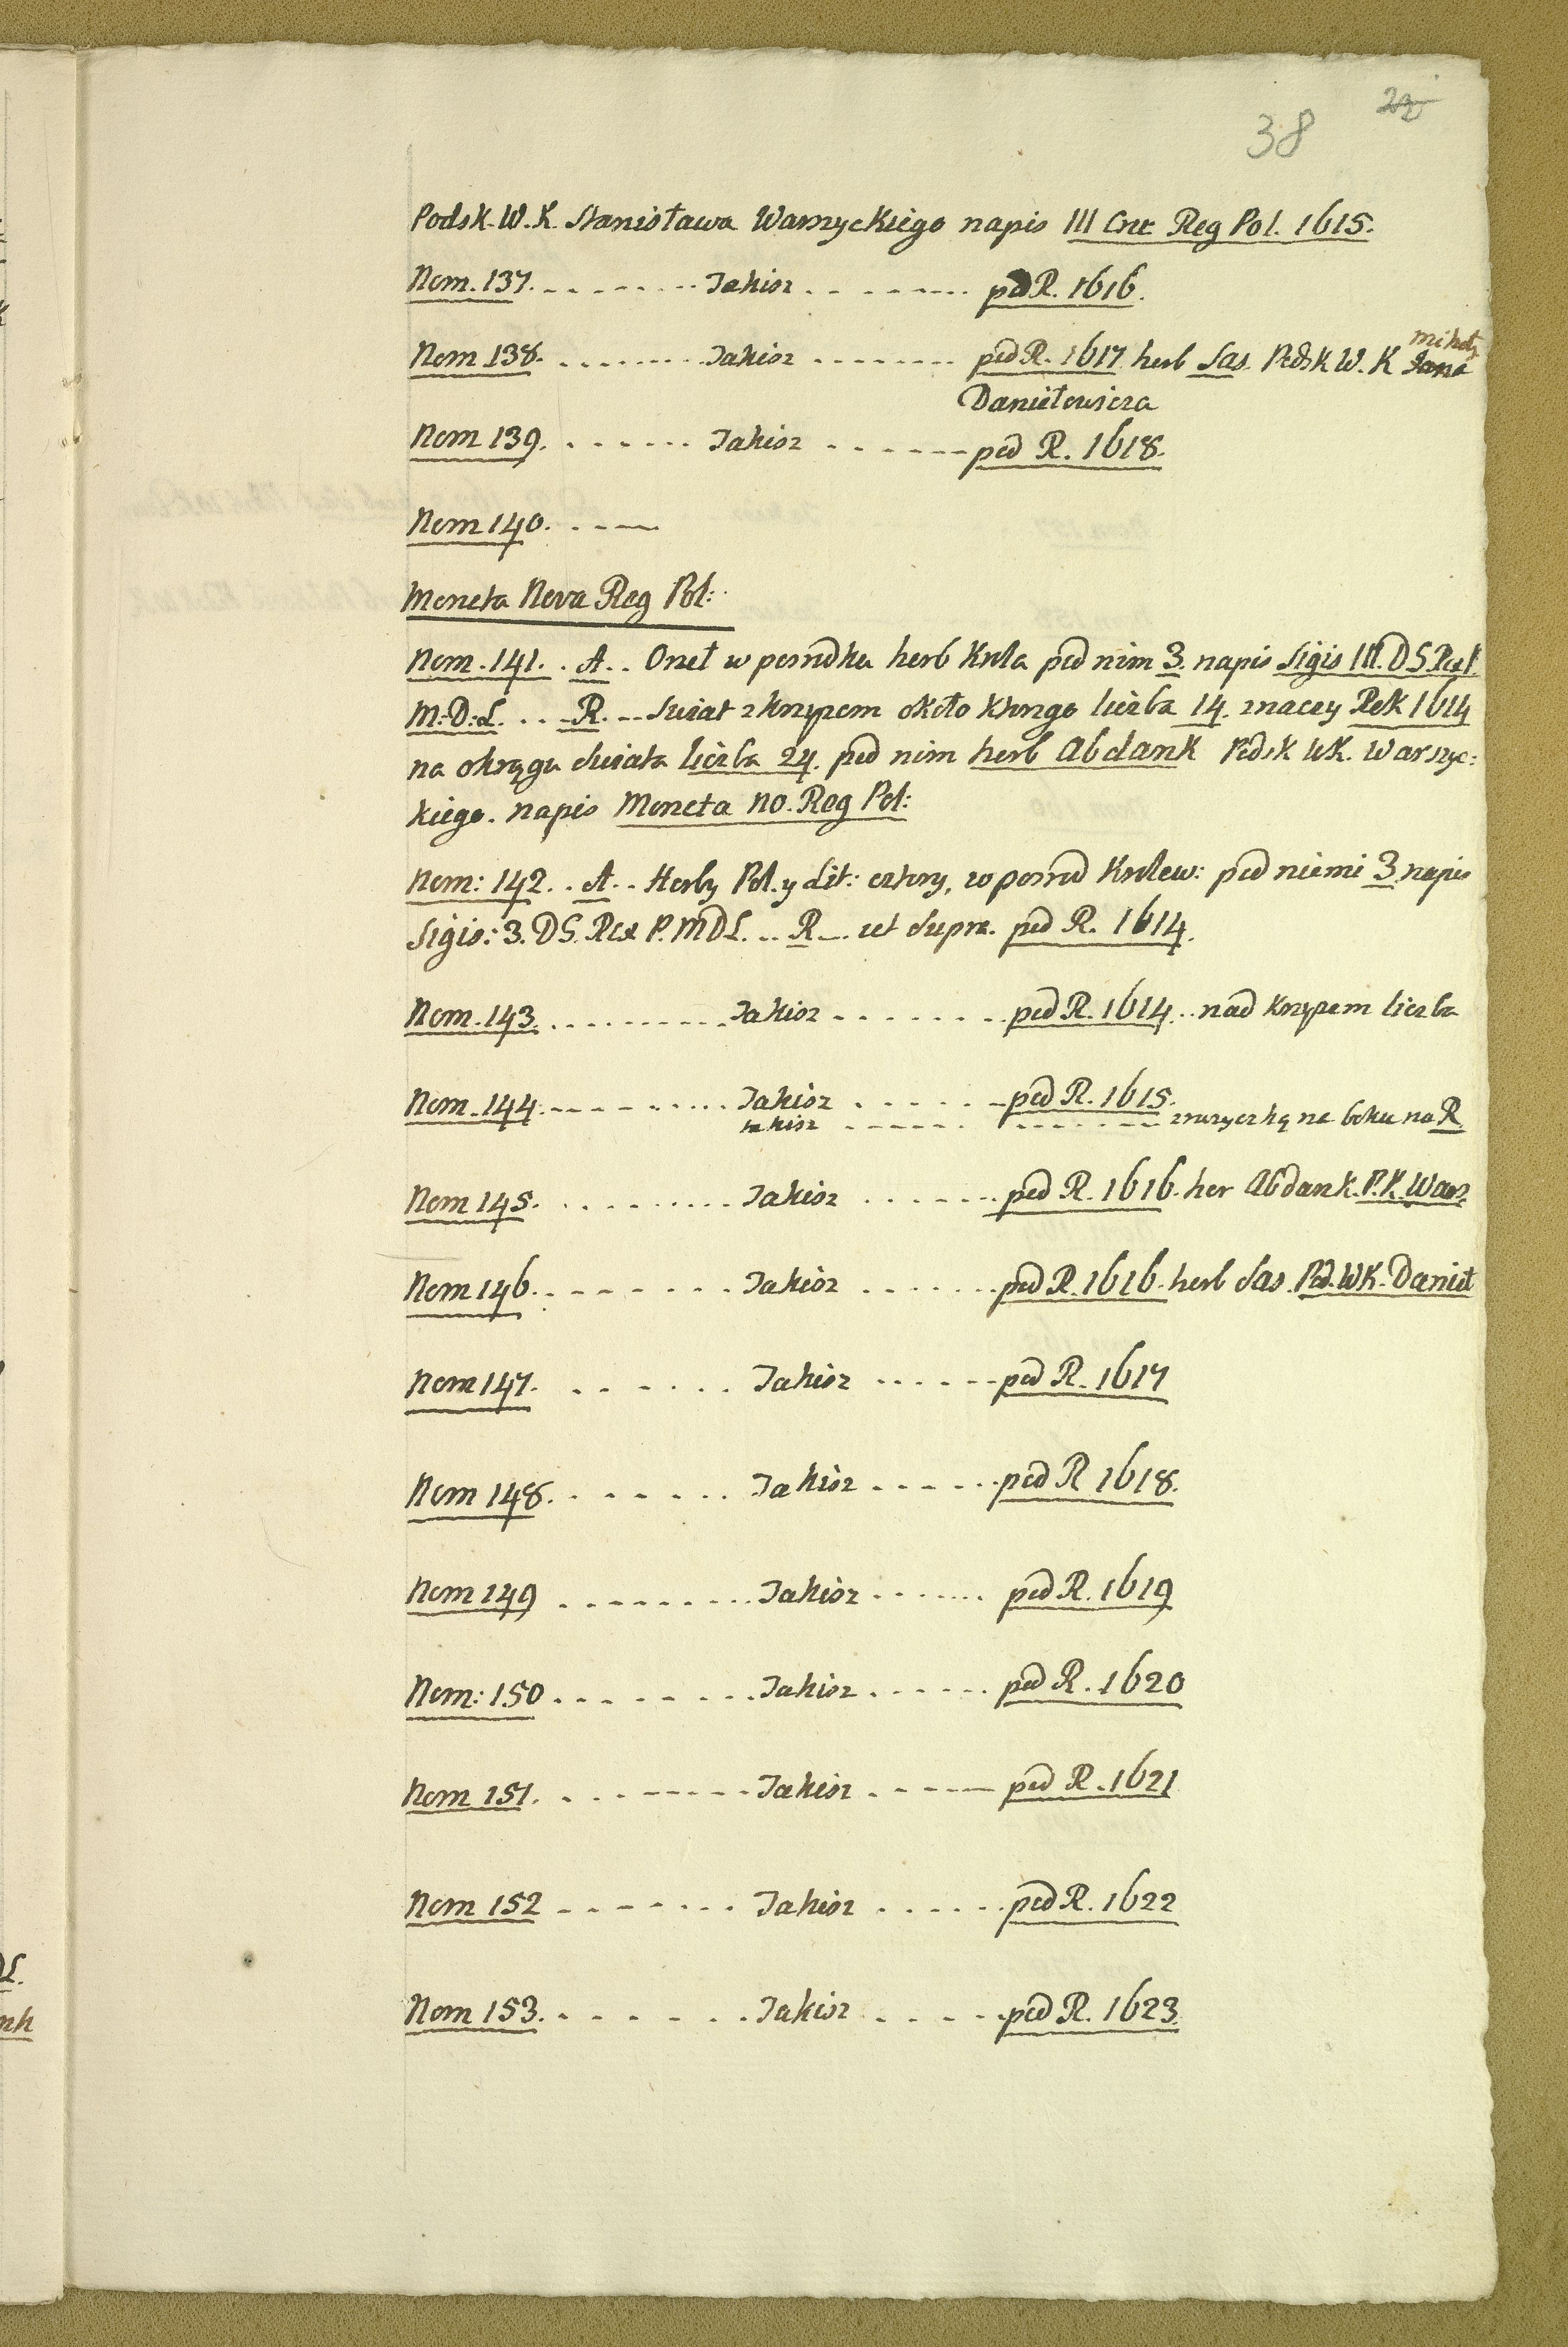 38 23
Podsk. W. K. Stanisława Warszyckiego napis III Cru Reg Pol. 1615.
Nom. 137. . . . . . . . . Takisz . . . . . . . . pod R. 1616.
mikoł.
Nom 138. . . . . . . . Takisz . . . . . . . . pod R. 1617 herb Sas. Podsk W. K Jana
Daniełowicza
Nom 139. . . . . . . Takisz . . . . . . . pod R. 1618.
Nom 140. . . . .
Moneta Nova Reg Pol:
Nom. 141. . A. . Orzeł w porsrodku herb Krola pod nim 3. napis Sigis III. D G. R et P.
M: D: L. . . . R. . . Swiat z krzyzem około ktorego liczba 14. znaczy Rok 1614
na okręgu swiata liczba 24. pod nim herb Abdank Podsk WK. Warszyc:
kiego. napis Moneta no. Reg Pol:
Nom: 142. . A. . Herby Pol. y Lit: cztery, w posrod Krolew: pod niemi 3. napis
Sigis: 3. D G. R et P. M D L. . . R . . ut supra. pod R. 1614.
Nom. 143. . . . . . . . . . . Takisz . . . . . . . . pod R. 1614. . . nad krzyzem liczba
Nom. 144. . . . . . . . . . Takisz . . . . . . pod R. 1615.
takisz . . . . . . . . . . . . . . zruzyczką na boku na R.
Nom 145. . . . . . . . . . Takisz . . . . . . . pod R. 1616. her Abdank. P. K. Wars
Nom 146. . . . . . . . . Takisz . . . . . . pod R. 1616. herb Sas. Pod. WK. Danieł
Nom 147. . . . . . . Takisz . . . . . . pod R. 1617
Nom 148. . . . . . . Takisz . . . . . . pod R 1618.
Nom 149 . . . . . . . . . Takisz . . . . . . pod R. 1619
Nom: 150 . . . . . . . . Takisz . . . . . . pod R. 1620
Nom 151. . . . . . . . . Takisz . . . . pod R. 1621
Nom 152 . . . . . . . . Takisz . . . . . . pod R. 1622
Nom 153. . . . . . . . Takisz . . . . . pod R. 1623.